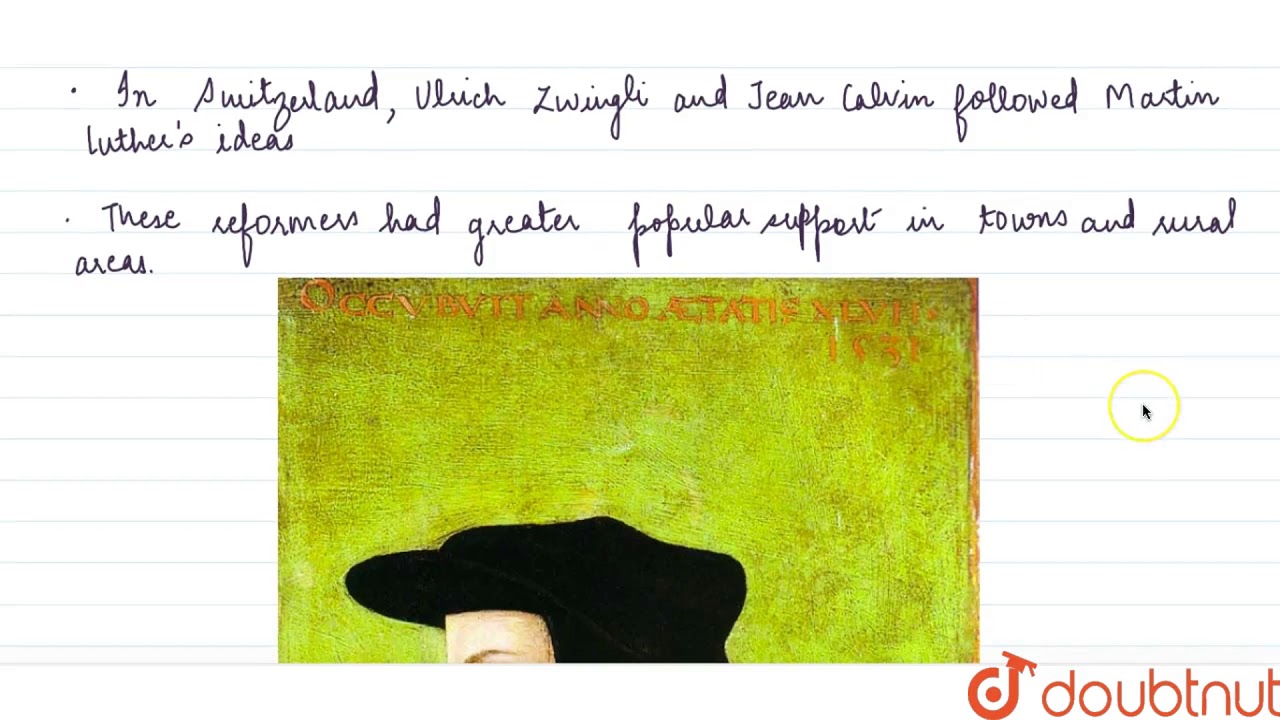 · In Switzerland, Ulrich Zwingli and Jean Calvin followed Martin
Luther's ideas
· These reformers had greater popular support in towns and rural
areas.
OCCVBVIT ANNO ÆTATIS XLVII.
1531
doubtnut